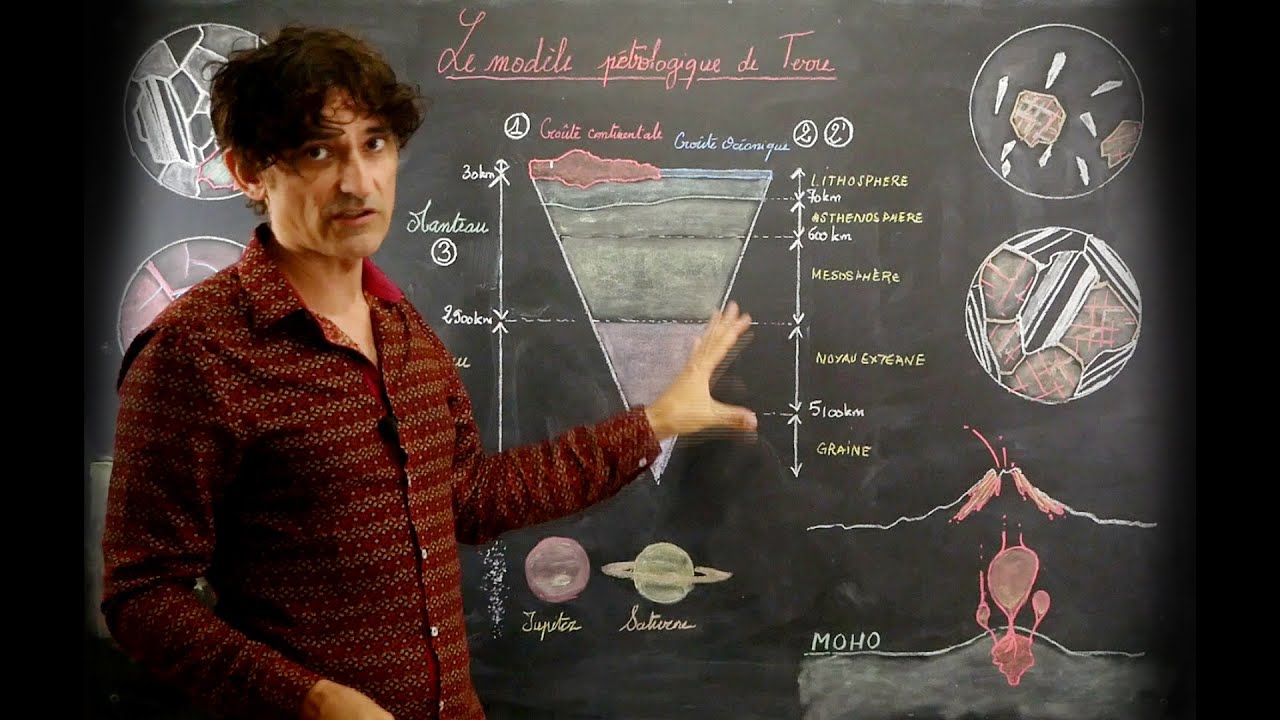 Le modèle pétrologique de Terre
① Croûte continentale
Croûte Océanique ② ②'
30km
LITHOSPHERE
70km
Manteau
③
ASTHENOSPHERE
600km
MESOSPHÈRE
2900km
NOYAU EXTERNE
5100km
GRAINE
Jupiter
Saturne
MOHO